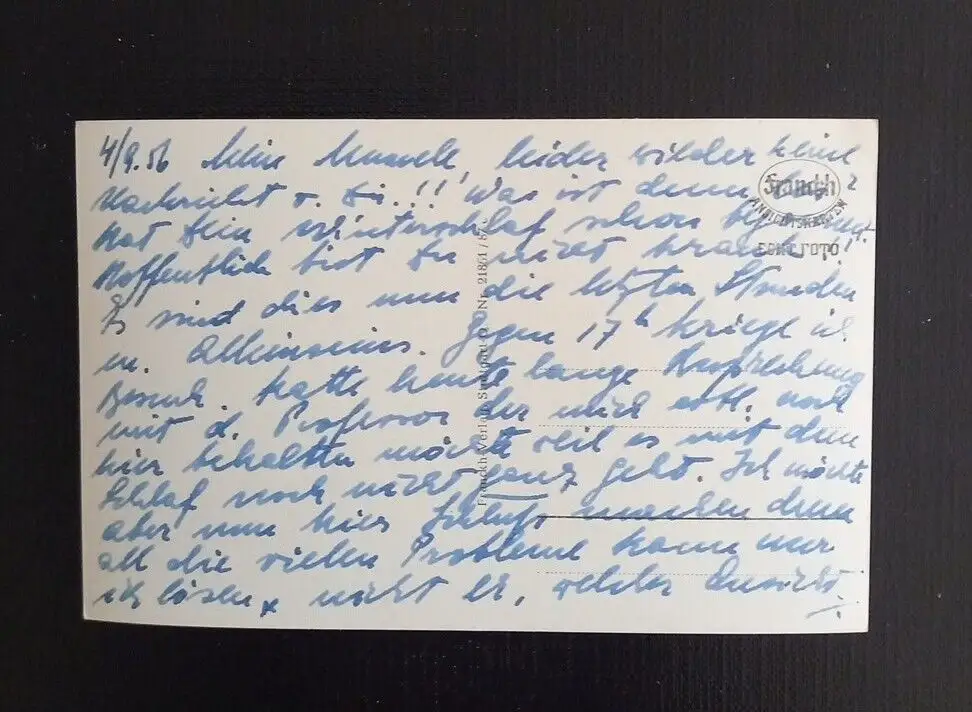 4/9.56 Mein leider wieder keine
Nachricht v. Dir!! Was ist denn
Hat Dein Winterschlaf schon
Hoffentlich bist Du nicht krank!
Es sind dies nun die letzten Stunden
m. Alleinseins. Gegen 17h kriege ich
Besuch. Hatte heute lange Besprechung
mit d. Professor der mich evtl. noch
hier behalten möchte weil es mit dem
Schlaf noch nicht ganz geht. Ich möchte
aber nun hier Schluß machen denn
all die vielen Probleme kann nur
ich lösen, nicht er,
Franckh
ANSICHTSKARTEN
ECHT FOTO
Franckh-Verlag Stuttgart-O